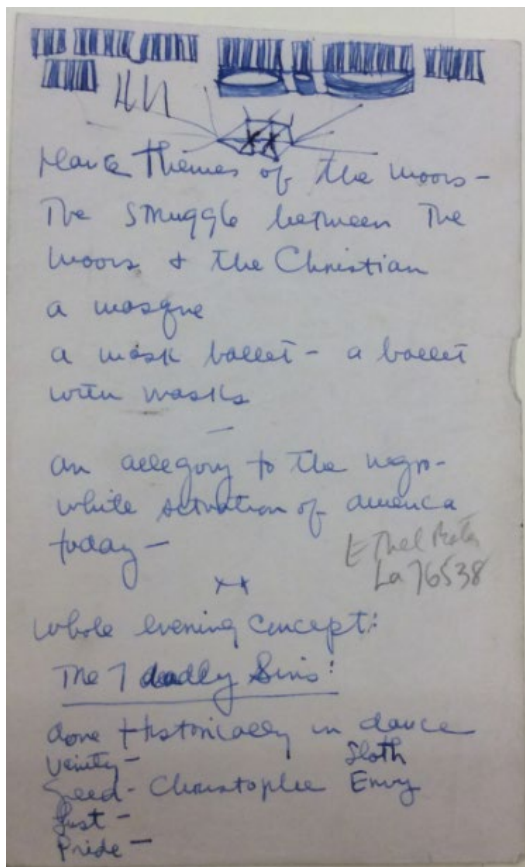 Themes of the Moors -
The Struggle between The
Moors & the Christian
a masque
a mask ballet - a ballet
with masks
-
an allegory to the negro-
white situation of america
today -
Ethel
La 76538
xx
whole evening concept:
The 7 deadly Sins:
done Historically in dance
Vanity - Sloth
Greed - Christophe Envy
Lust -
Pride -